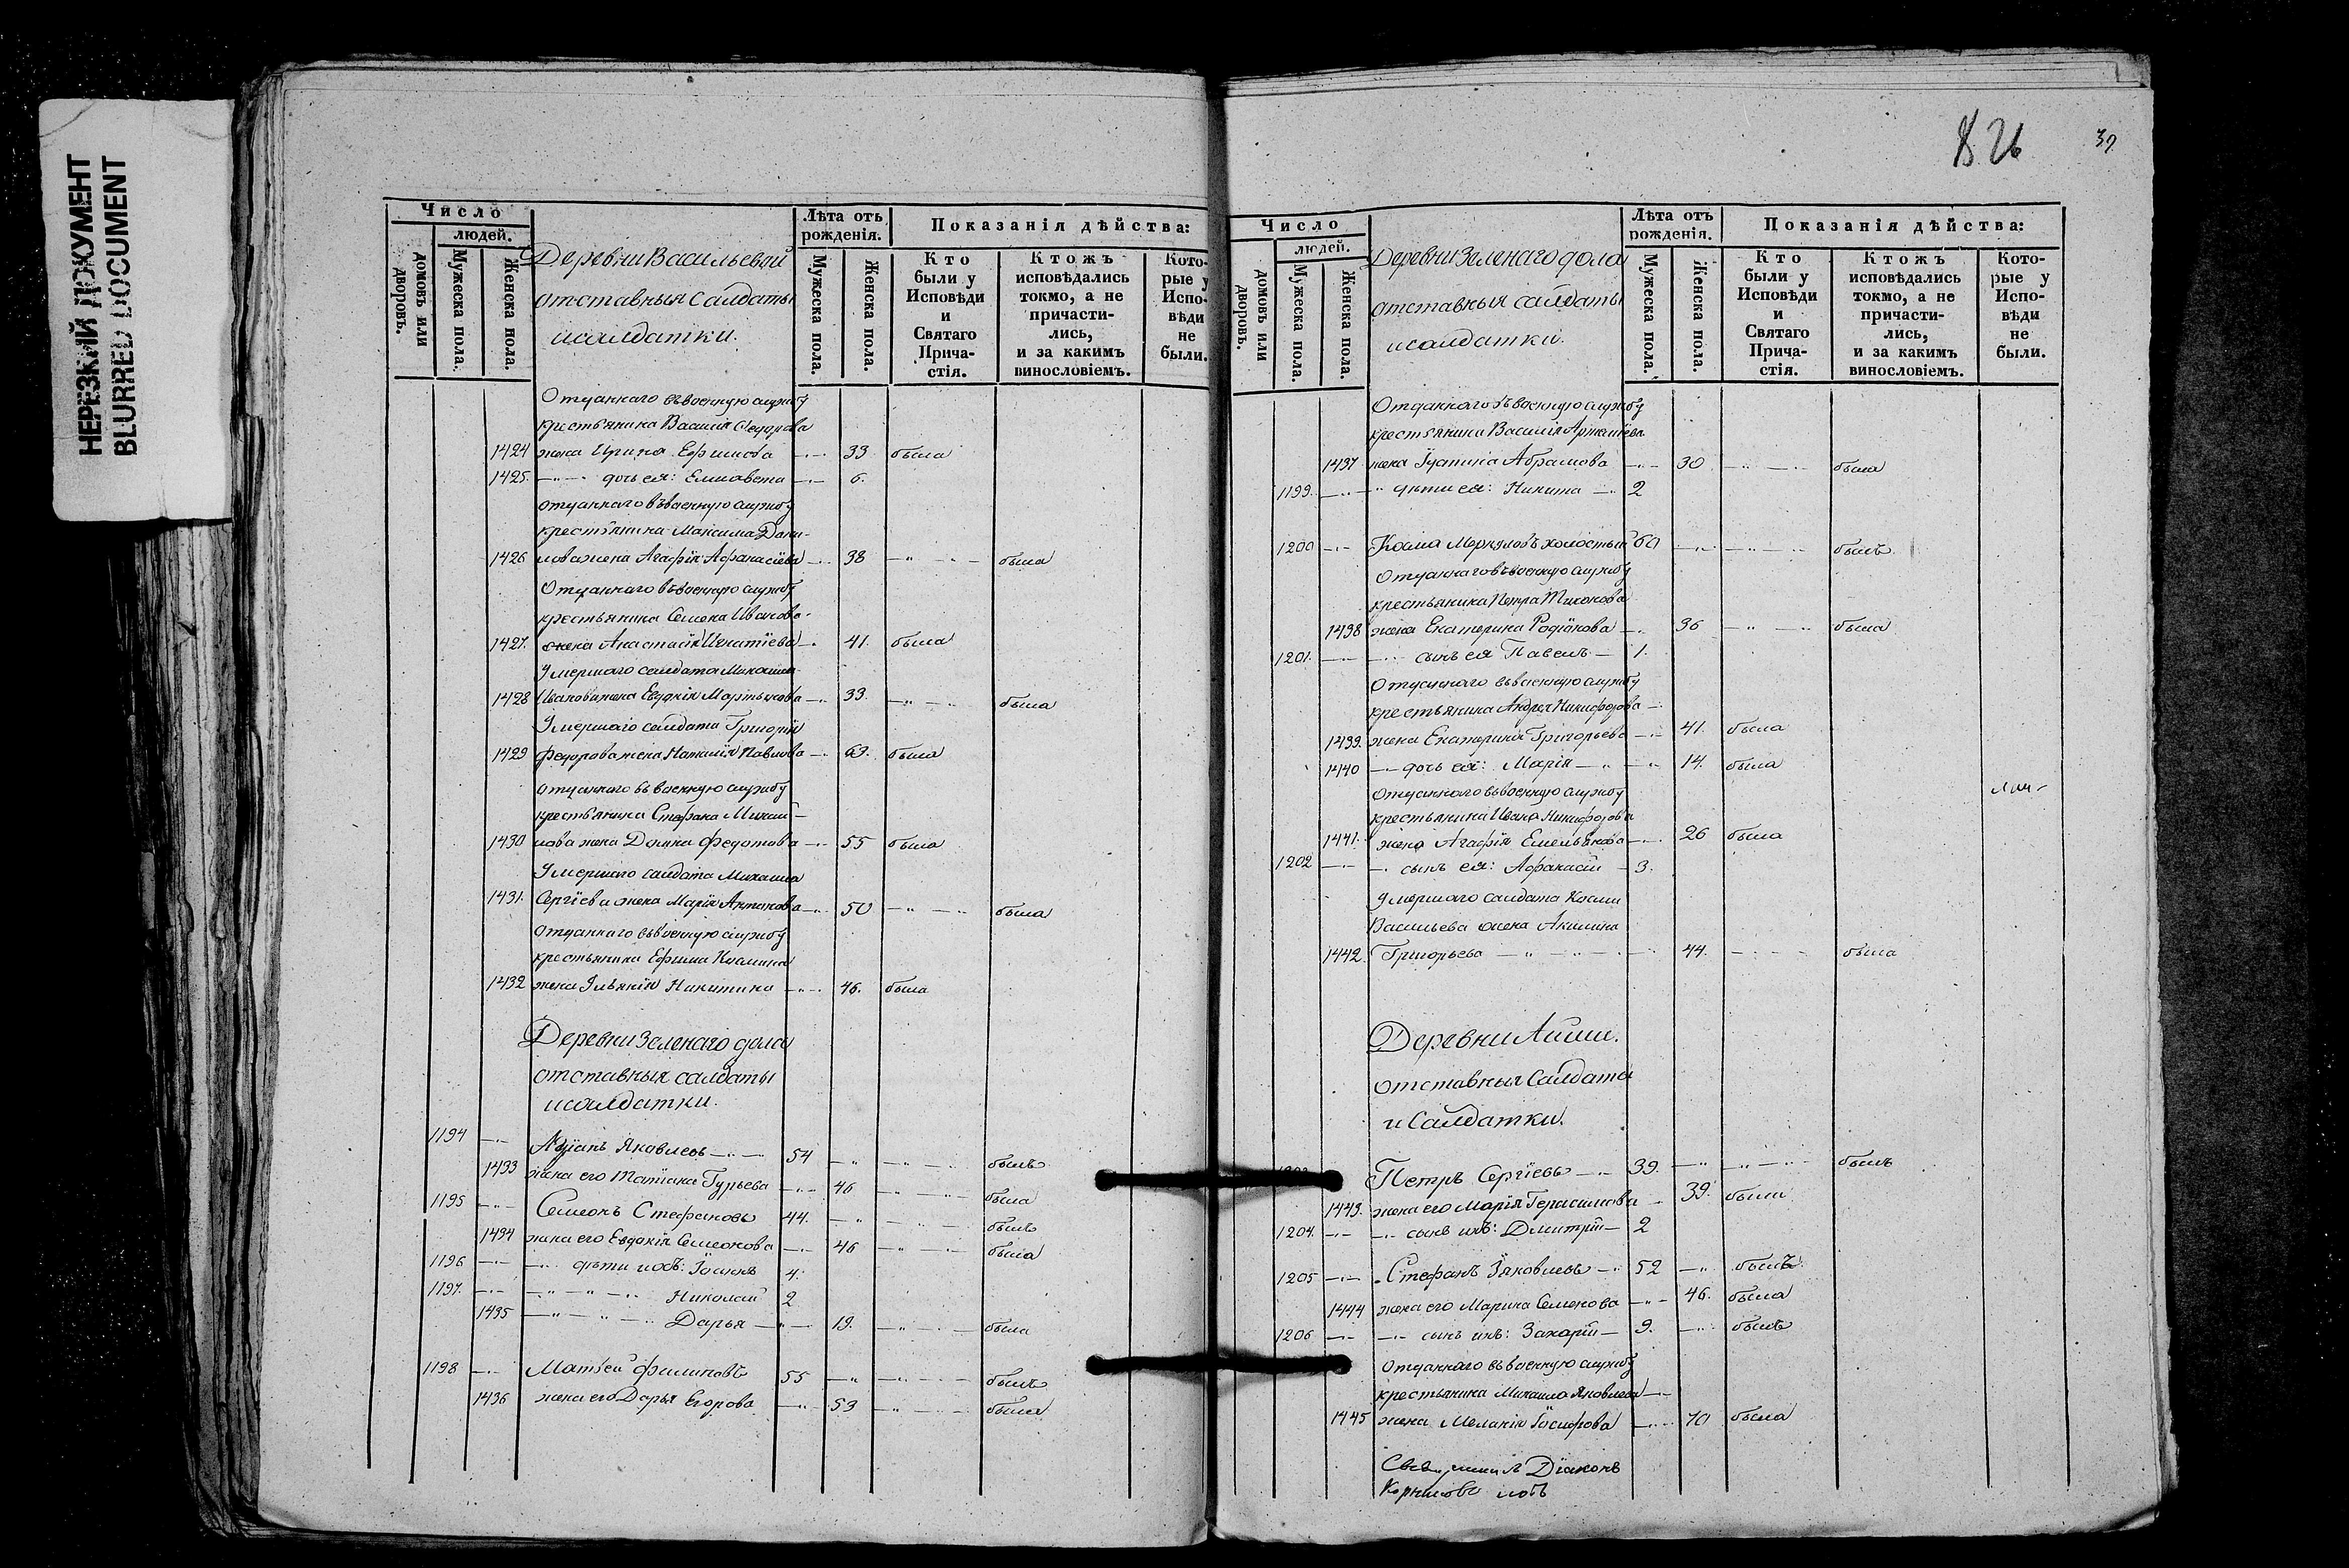 НЕРЕЗКИЙ ДОКУМЕНТ
BLURRED DOCUMENT
Число
людей.
домовъ или дворовъ.
Мужеска пола.
Женска пола.
Деревни Васильевой
отставныя салдаты
и салдатки.
Лѣта отъ рожденія.
Мужеска пола.
Женска пола.
Показанія дѣйства:
Кто были у Исповѣди и Святаго Прича-стія.
Ктожъ исповѣдались токмо, а не причасти-лись, и за какимъ винословіемъ.
Кото-рые у Испо-вѣди не были.
Отданнаго въ военную службу
крестьянина Василія Федорова
1424 жена Ирина Ефимова 33 была
1425. дочь ея: Елисавета 6.
отданнаго въ военную службу
крестьянина Максима Дани-
1426 лова жена Агафія Афанасіева 38 была
Отданнаго въ военную службу
крестьянина Семена Иванова
1427. жена Анастасія Игнатіева 41. была
Умершаго салдата Михаила
1428 Иванова жена Евдокія Мартынова 33. была
Умершаго салдата Григорія
1429 Федорова жена Наталія Павлова 63. была
отданнаго въ военную службу
крестьянина Стефана Михай-
1430 лова жена Домна Федотова 55 была
Умершаго салдата Михаила
1431. Сергіева жена Марія Антонова 50 была
отданнаго въ военную службу
крестьянина Ефима Космина
1432 жена Ульянія Никитина 46. была
Деревни Зеленаго дола
отставныя салдаты
и салдатки.
1194 Адріанъ Яковлевъ 54 былъ
1433 жена его Татіана Гурьева 46 была
1195 Семеонъ Стефановъ 44. былъ
1434 жена его Евдокія Семеонова 46 была
1196 дѣти ихъ: Іоаннъ 4.
1197. Николай 2
1435 Дарья 19. была
1198 Матвей Филиповъ 55 былъ
1436 жена его Дарья Егорова 53 была
26
39
Число
людей.
домовъ или дворовъ.
Мужеска пола.
Женска пола.
Деревни Зеленаго дола
отставныя салдаты
и салдатки.
Лѣта отъ рожденія.
Мужеска пола.
Женска пола.
Показанія дѣйства:
Кто были у Исповѣди и Святаго Прича-стія.
Ктожъ исповѣдались токмо, а не причасти-лись, и за какимъ винословіемъ.
Кото-рые у Испо-вѣди не были.
Отданнаго въ военную службу
крестьянина Василія
1437 жена Абрамова 30 была
1199. дѣти ея: Никита 2
1200 Косма Меркуловъ холостый 60 былъ
Отданнаго въ военную службу
крестьянина Петра Тихонова
1438 жена Екатерина Родіонова 36 была
1201. сынъ ея Павелъ 1.
Отданнаго въ военную службу
крестьянина Андрея Никифорова
1439. жена Екатерина Григорьева 41. была
1440 дочь ея: Марія 14. была
Отданнаго въ военную службу
крестьянина Ивана Никифорова
1441. жена Агафія Емельянова 26 была
1202 сынъ ея: Афанасій 3.
умершаго салдата Космы
Васильева жена Акилина
1442. Григорьева 44. была
Деревни Аиши.
отставныя Салдаты
и Салдатки.
Петръ Сергіевъ 39. былъ
1443. жена его Марія Герасимова 39. была
1204. сынъ ихъ: Дмитрій 2
1205 Стефанъ Яковлевъ 52 былъ
1444 жена его Марина Семенова 46. была
1206 сынъ ихъ: Захарій 9. былъ
Отданнаго въ военную службу
крестьянина Михаила Яковлева
1445 жена Меланія Іосифова 40 была
Діаконъ